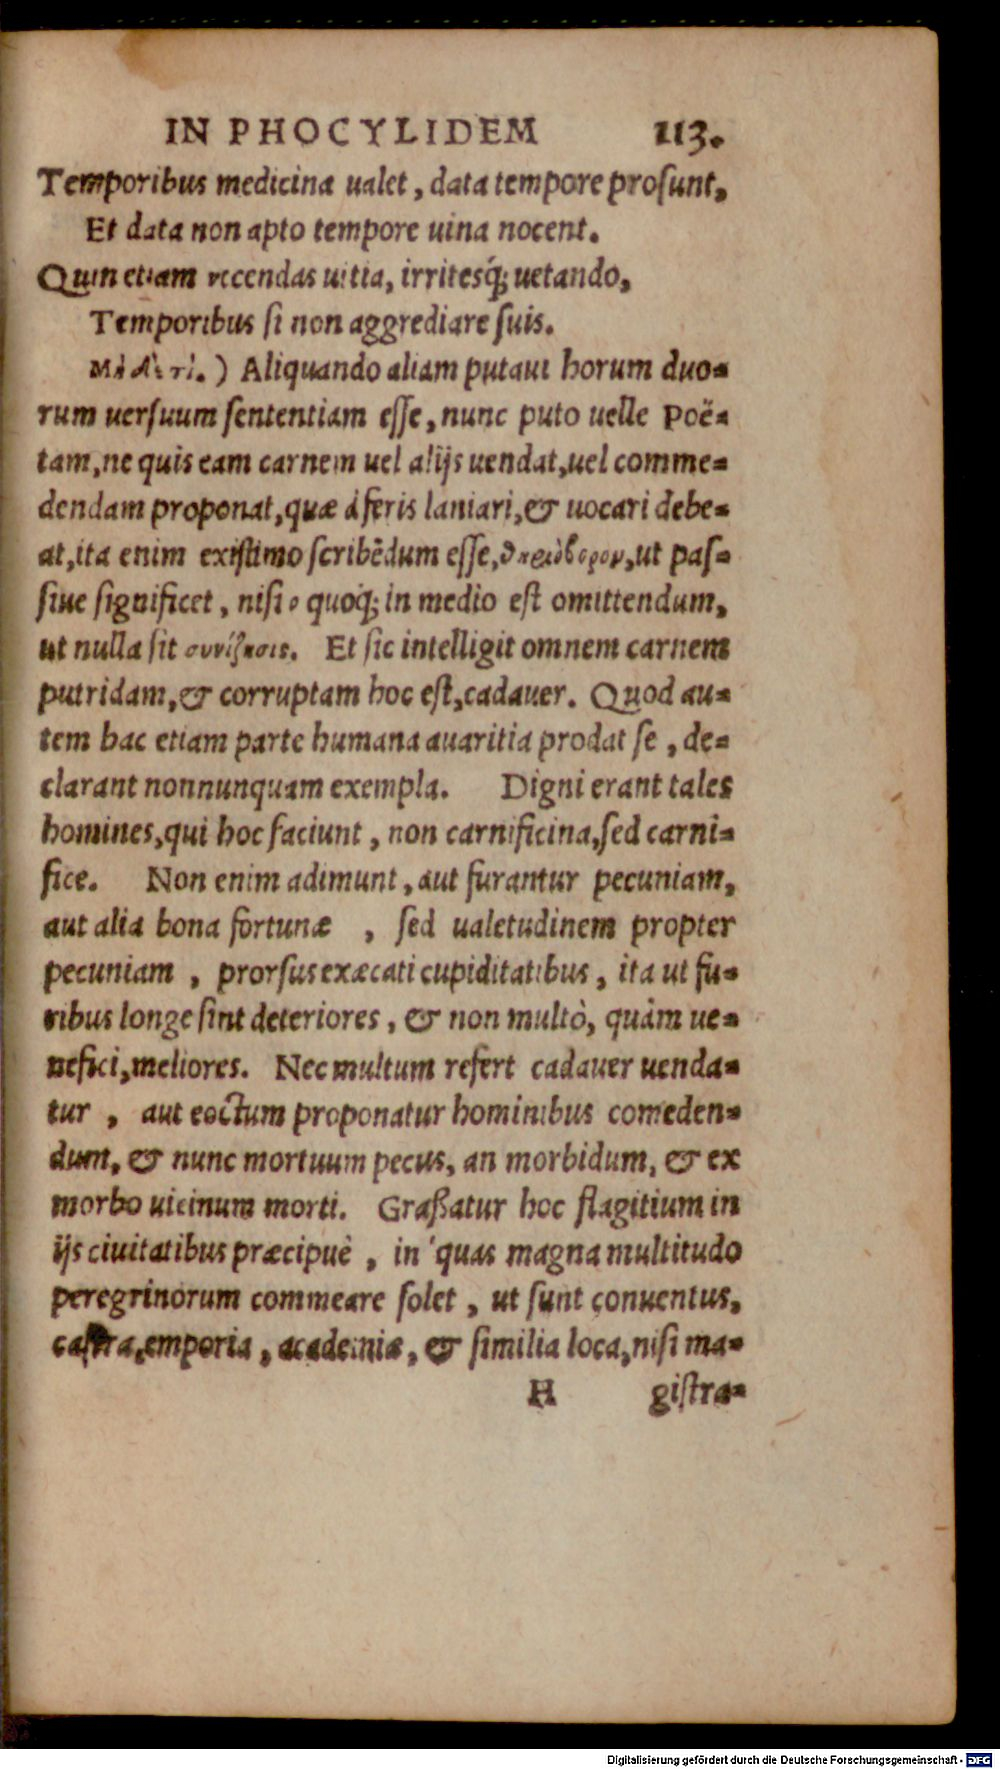 IN PHOCYLIDEM 113.
Temporibus medicina ualet, data tempore prosunt,
Et data non apto tempore uina nocent.
Quin etiam accendas uitia, irritesq́; uetando,
Temporibus si non aggrediare suis.
Μὴ δέ τι.) Aliquando aliam putaui horum duo-
rum uersuum sententiam esse, nunc puto uelle Poë-
tam, ne quis eam carnem uel alijs uendat, uel comme-
dendam proponat, quæ à feris laniari, & uocari debe-
at, ita enim existimo scribēdum esse, θηρόβορον, ut pas-
siue significet, nisi ο quoq́; in medio est omittendum,
ut nulla sit συνίζησις. Et sic intelligit omnem carnem
putridam, & corruptam hoc est, cadauer. Quod au-
tem hac etiam parte humana auaritia prodat se, de-
clarant nonnunquam exempla. Digni erant tales
homines, qui hoc faciunt, non carnificina, sed carni-
fice. Non enim adimunt, aut furantur pecuniam,
aut alia bona fortunæ, sed ualetudinem propter
pecuniam, prorsus exæcati cupiditatibus, ita ut fu-
ribus longe sint deteriores, & non multò, quàm ue-
nefici, meliores. Nec multum refert cadauer uenda-
tur, aut coctum proponatur hominibus comeden-
dum, & nunc mortuum pecus, an morbidum, & ex
morbo uicinum morti. Graßatur hoc flagitium in
ijs ciuitatibus præcipuè, in quas magna multitudo
peregrinorum commeare solet, ut sunt conuentus,
castra, emporia, academiæ, & similia loca, nisi ma-
H gistra-
Digitalisierung gefördert durch die Deutsche Forschungsgemeinschaft - DFG